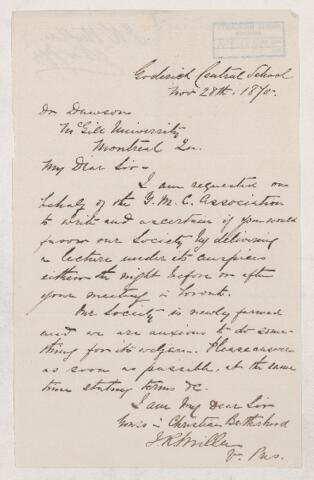 Goderich Central School
Nov 28th. 1870.
Dr Dawson
McGill University
Montreal Qu.
My Dear Sir -
I am requested on
behalf of the Y. M. C. Association
to write and ascertain if you would
favour our Society by delivering
a lecture under its auspices
either the night before or after
your meeting in Toronto.
Our Society is newly formed
and we are anxious to do some-
thing for its welfare. Please answer
as soon as possible, at the same
time stating terms &c.
I am My Dear Sir
Yours in Christian Brotherhood
J. R. Miller
V. Pres.